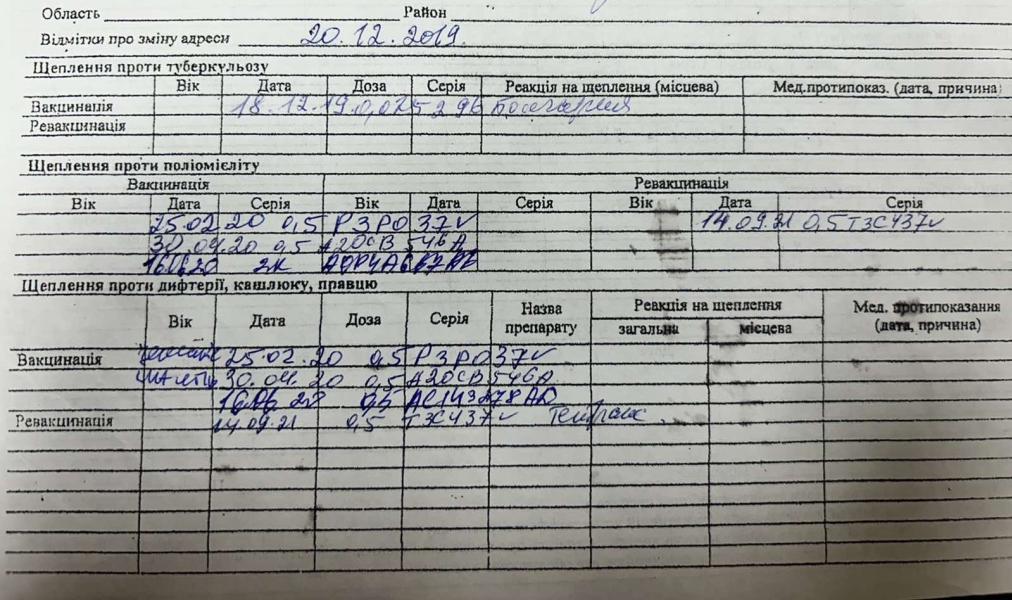 Область Район
Відмітки про зміну адреси 20.12.2019.
Щеплення проти туберкульозу
Вік Дата Доза Серія Реакція на щеплення (місцева) Мед.протипоказ. (дата, причина)
Вакцинація 18.12.19 5296
Ревакцинація
Щеплення проти поліомієліту
Вакцинація Ревакцинація
Вік Дата Серія Вік Дата Серія Вік Дата Серія
25.02 20 0,5 P3P037v 14.09.21 0,5 T3C437v
30.04.20 0,5 A20CB546A
16.06.20
Щеплення проти дифтерії, кашлюку, правцю
Вік Дата Доза Серія Назва препарату Реакція на щеплення Мед. протипоказання (дата, причина)
загальна місцева
Вакцинація 25.02.20 0,5 P3P037v
30.04.20 0,5 A20CB546A
0,5
Ревакцинація 14.09.21 0,5 T3C437v